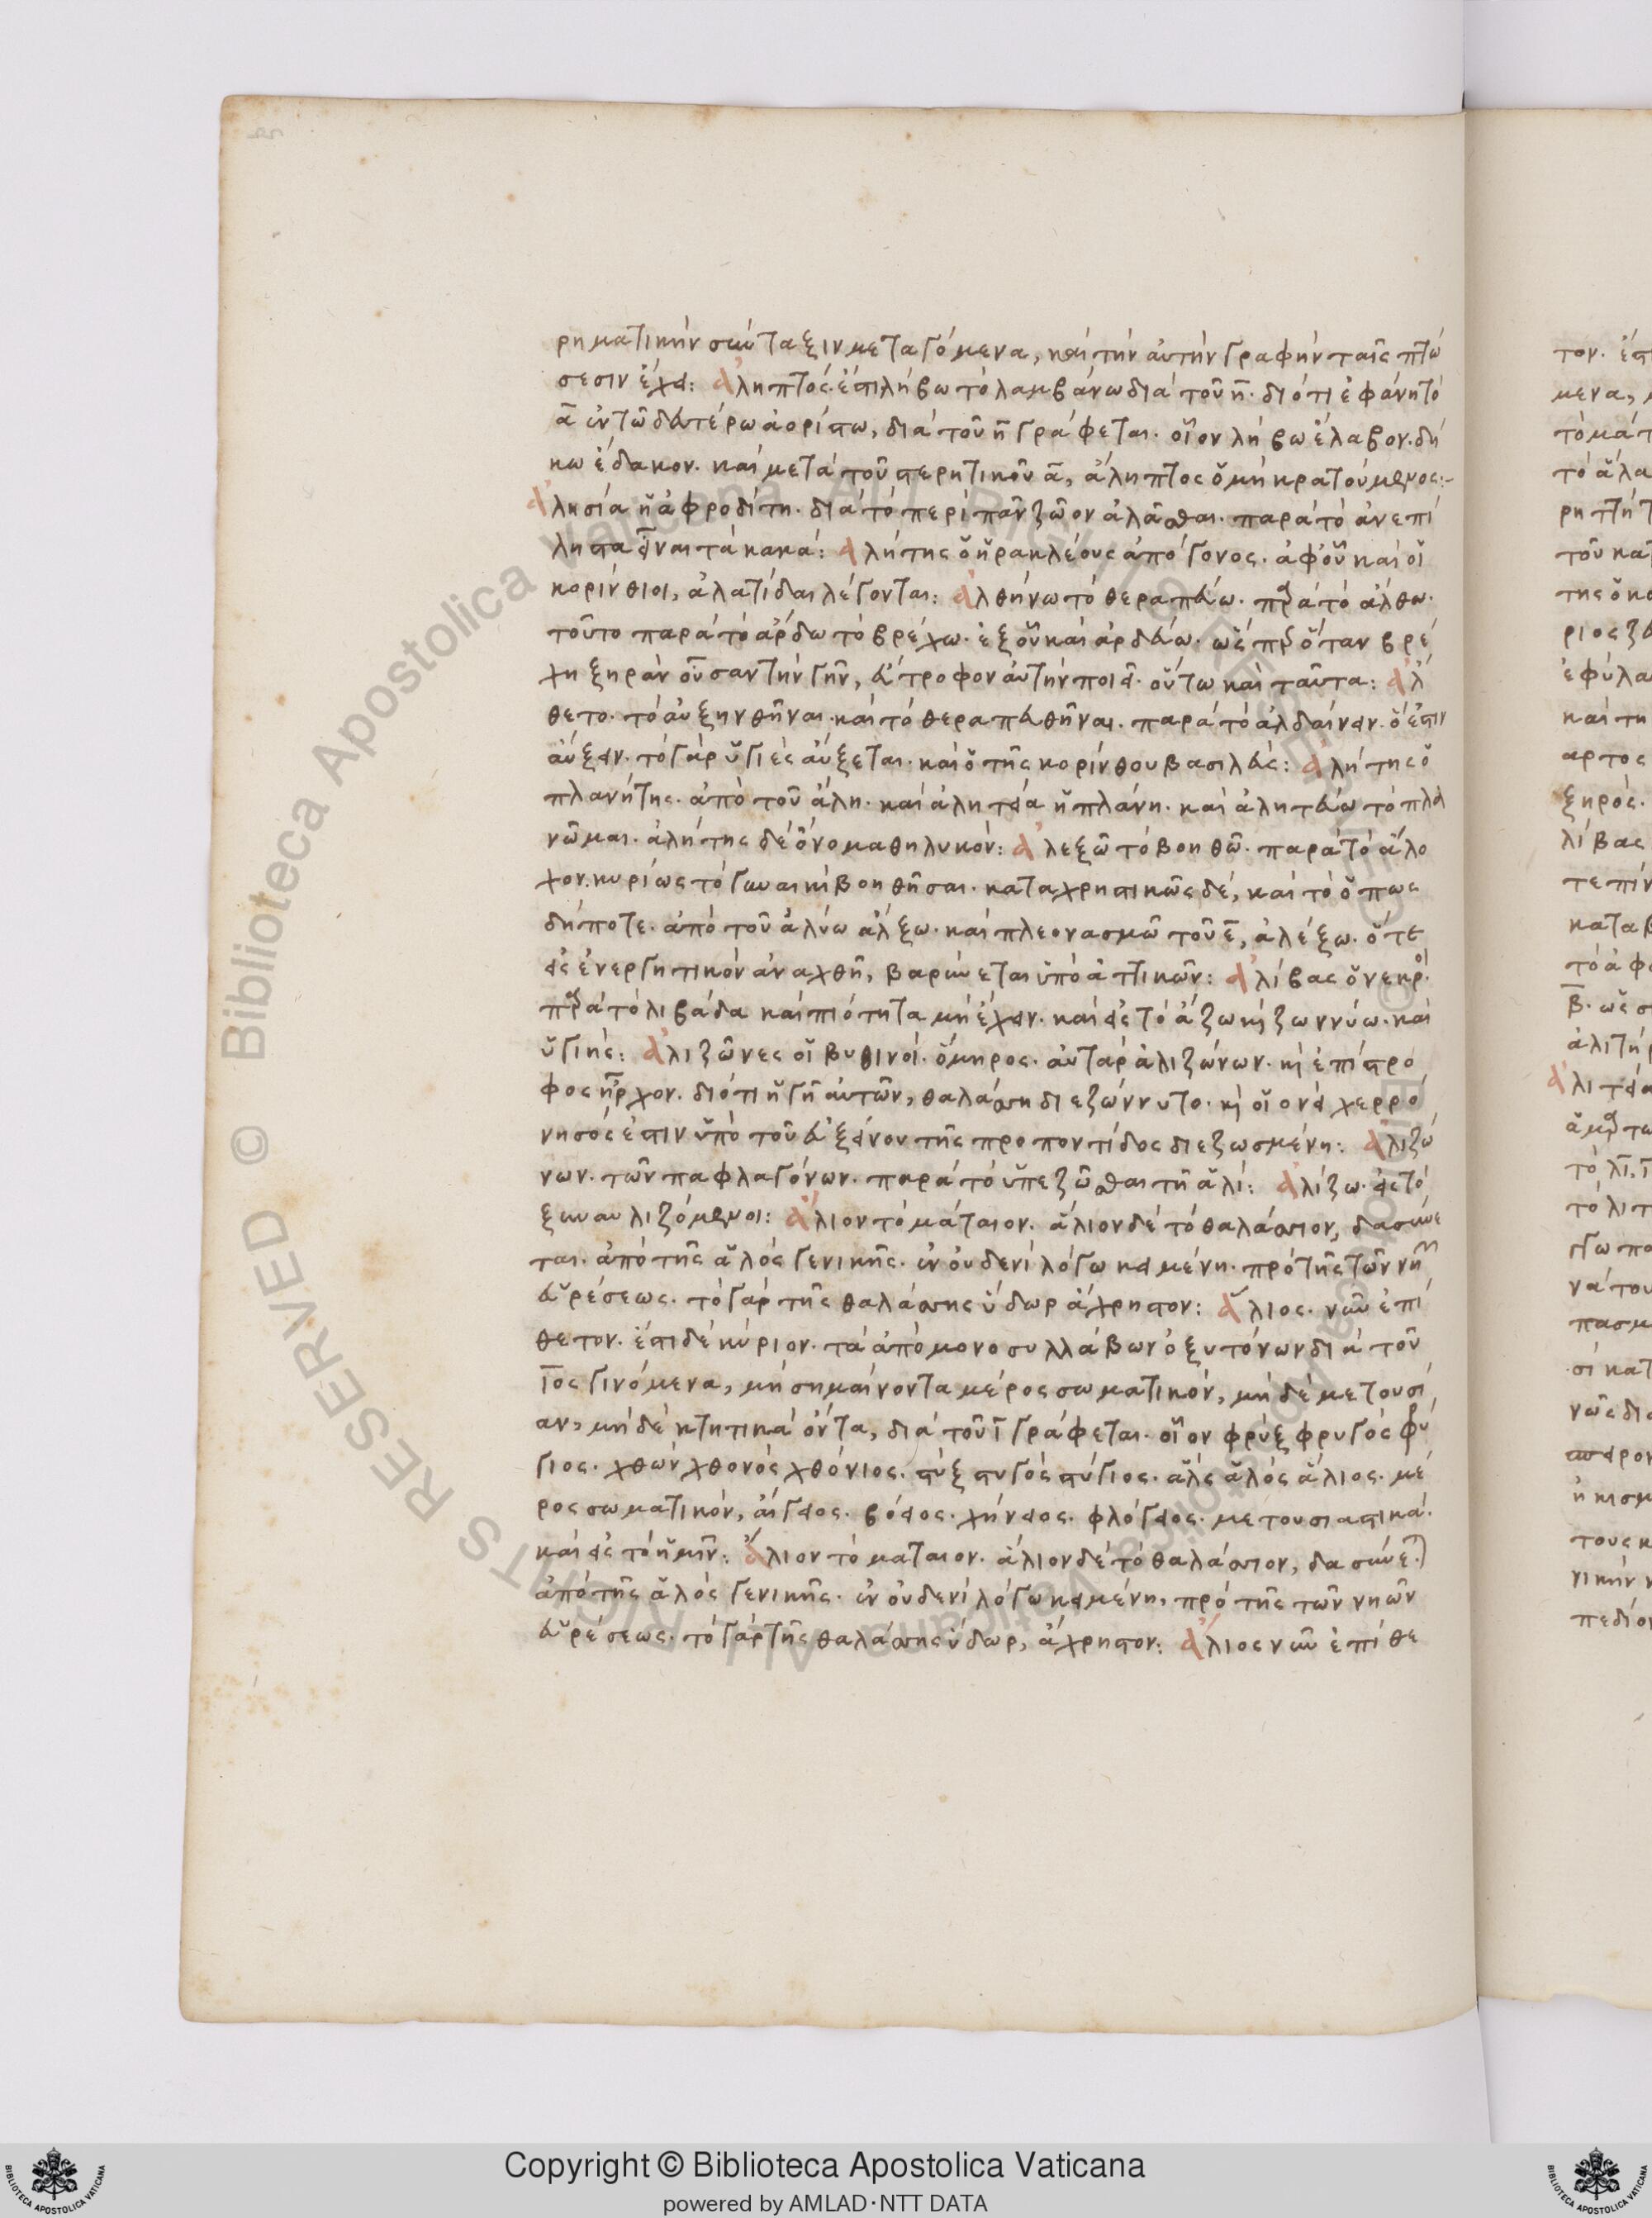 ρηματικὴν σύνταξιν μεταγόμενα, καὶ τὴν αὐτὴν γραφὴν ταῖς πτώ
σεσιν ἔχει: ἄληπτος. ἐστὶ λήβω τὸ λαμβάνω διὰ τοῦ η. διότι ἐφάνη τὸ
α ἐν τῶ δευτέρω ἀορίστω, διὰ τοῦ η γράφεται. οἷον λήβω ἔλαβον. δή
κω ἔδακον. καὶ μετὰ τοῦ στερητικοῦ α, ἄληπτος ὁ μὴ κρατούμενος:-
ἀλησία ἡ ἀφροδίτη. διὰ τὸ περὶ πᾶν ζῶον ἀλᾶσθαι. παρὰ τὸ ἀνεπί
ληστα εἶναι τὰ κακά: ἀλήτης ὁ ἡρακλέους ἀπόγονος. ἀφ' οὗ καὶ οἱ
κορίνθιοι, ἀλατίδαι λέγονται: ἀλθήνω τὸ θεραπεύω. παρὰ τὸ ἄλθω.
τοῦτο παρὰ τὸ ἄρδω τὸ βρέχω. ἐξ οὗ καὶ ἀρδεύω. ὥσπερ ὅταν βρέ
χη ξηρὰν οὖσαν τὴν γῆν, εὔτροφον αὐτὴν ποιεῖ. οὕτω καὶ ταῦτα: ἄλ
θετο. τὸ αὐξηνθῆναι. καὶ τὸ θεραπευθῆναι. παρὰ τὸ ἀλδαίνειν. ὅ ἐστιν
αὔξειν. τὸ γὰρ ὑγιὲς αὔξεται. καὶ ὁ τῆς κορίνθου βασιλεύς: ἀλήτης ὁ
πλανήτης. ἀπὸ τοῦ ἄλη. καὶ ἀλητεία ἡ πλάνη. καὶ ἀλητεύω τὸ πλα
νῶμαι. ἀλήτης δὲ ὄνομα θηλυκόν: ἀλεξῶ τὸ βοηθῶ. παρὰ τὸ ἄλο
χον. κυρίως τὸ γυναικὶ βοηθῆσαι. καταχρηστικῶς δὲ, καὶ τὸ ὅπως
δήποτε. ἀπὸ τοῦ ἀλύω ἀλξω. καὶ πλεονασμῶ τοῦ ε, ἀλέξω. ὅτε
εἰς ἐνεργητικὸν ἀναχθῆ, βαρύνεται ὑπὸ ἀττικῶν: ἀλίβας ὁ νεκρός.
παρὰ τὸ λιβάδα καὶ πιότητα μὴ ἔχειν. καὶ εἰς τὸ ἄζω καὶ ζωννύω. καὶ
ὑγιής: ἀλιζῶνες οἱ βυθινοί. ὅμηρος. αὐτὰρ ἁλιζώνων. καὶ ἐπίστρο
φος ἦρχον. διότι ἡ γῆ αὐτῶν, θαλάσση διεζώννυτο. καὶ οἱονεὶ χερρό
νησός ἐστιν ὑπὸ τοῦ εὐξείνου τῆς προποντίδος διεζωσμένη: ἁλιζώ
νων. τῶν παφλαγόνων. παρὰ τὸ ὑπεζῶσθαι τῆ ἁλί: ἀλίζω. εἰς τὸ
ξυναυλιζόμενοι: ἄλιον τὸ μάταιον. ἅλιον δὲ τὸ θαλάσσιον, δασύνε
ται. ἀπὸ τῆς ἁλὸς γενικῆς. ἐν οὐδενὶ λόγω κειμένη. πρὸ τῆς τῶν νηῶν
εὑρέσεως. τὸ γὰρ τῆς θαλάσσης ὕδωρ ἄχρηστον: ἅλιος. νῦν ἐπί
θετον. ἔστι δὲ κύριον. τὰ ἀπὸ μονοσυλλάβων ὀξυτόνων διὰ τοῦ
ιος γινόμενα, μὴ σημαίνοντα μέρος σωματικόν, μὴ δὲ μετουσί
αν, μὴ δὲ κτητικὰ ὄντα, διὰ τοῦ ι γράφεται. οἷον φρύξ φρυγός φρύ
γιος. χθών χθονός χθόνιος. στύξ στυγός στύγιος. ἅλς ἁλός ἅλιος. μέ
ρος σωματικόν, αἴγειος. βόειος. χήνειος. φλόγειος. μετουσιαστικά.
καὶ εἰς τὸ ἡμῖν: ἄλιον τὸ μάταιον. ἅλιον δὲ τὸ θαλάσσιον, δασύνεται.
ἀπὸ τῆς ἁλὸς γενικῆς. ἐν οὐδενὶ λόγω κειμένη, πρὸ τῆς τῶν νηῶν
εὑρέσεως. τὸ γὰρ τῆς θαλάσσης ὕδωρ, ἄχρηστον: ἅλιος νῦν ἐπίθε
Copyright © Biblioteca Apostolica Vaticana
powered by AMLAD·NTT DATA